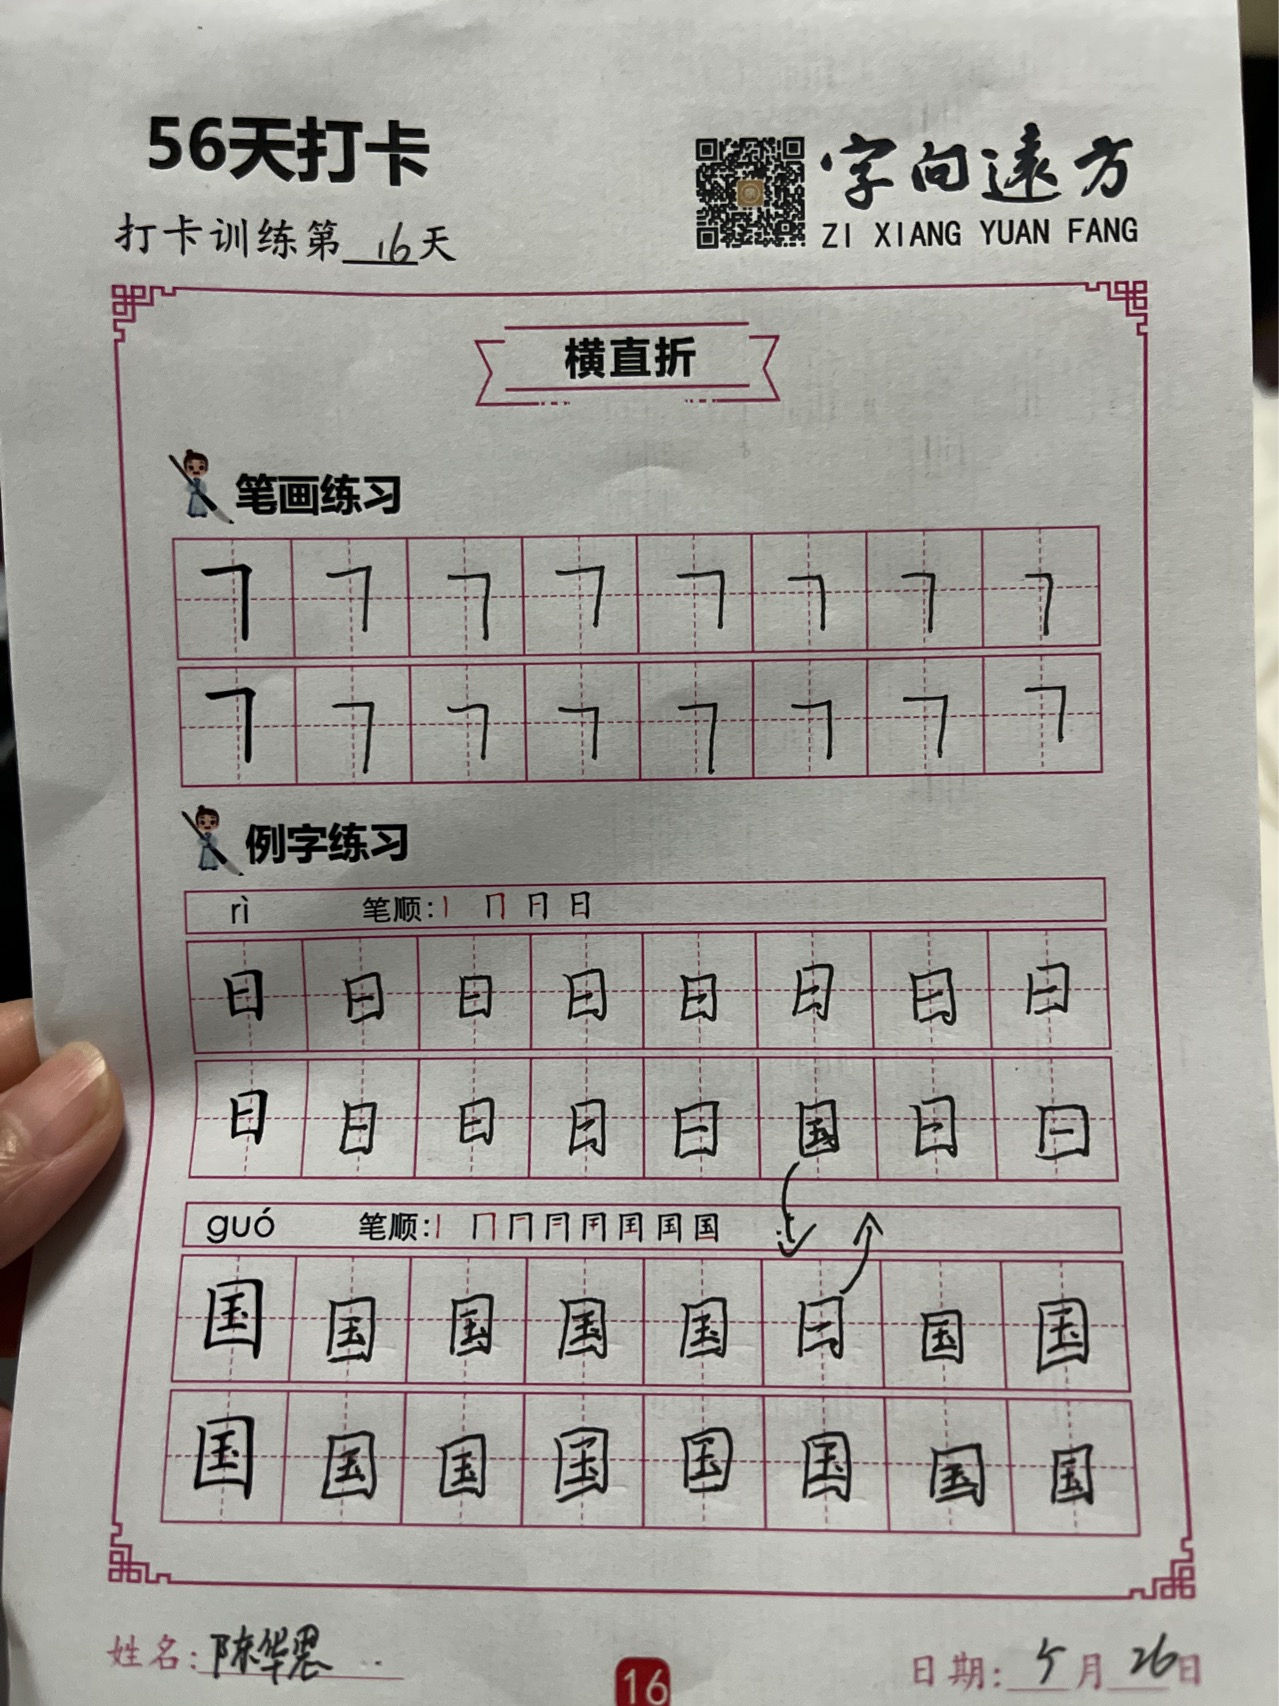 56天打卡
字向遠方
打卡训练第16天
ZI XIANG YUAN FANG
横直折
笔画练习
㇕ ㇕ ㇕ ㇕ ㇕ ㇕ ㇕ ㇕
㇕ ㇕ ㇕ ㇕ ㇕ ㇕ ㇕ ㇕
例字练习
rì 笔顺: 丨 冂 日
日 日 日 日 日 日 日 日
日 日 日 日 日 国 日 日
guó 笔顺: 丨 冂 国 国
国 国 国 国 国 日 国 国
国 国 国 国 国 国 国 国
姓名:陈华恩
16
日期:5月26日